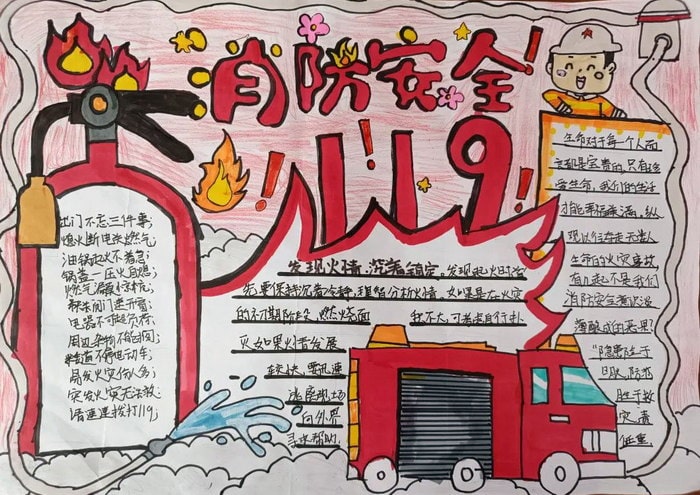 消防安全!
119
出门不忘三件事;
熄火断电关燃气;
油锅起火不着急;
锅盖一压火自熄;
燃气泄漏怀
关阀门通开窗;
电器不可超负荷;
周边杂物不
不停电动车;
易发火灾伤人多;
突发火灾无法救;
请速连拨打119;
发现火情,沉着镇定,发现起火时首
先要保持沉着冷静,理智分析火情,如果是在火灾
的初期阶段,燃烧面 积不大,可考虑自行扑
灭如果火情发展
较快,要迅速
逃离现场
向外界
寻求帮助
生命对于每个人而
言都是宝贵的,只有珍
爱生命,我们的生活
才能幸福美满。纵
观以往夺走无数人
生命的火灾事故,
有几起不是我们
消防安全意识淡
薄酿成的恶果?
“隐患险于
明火,防范
胜于救
灾,责
任重